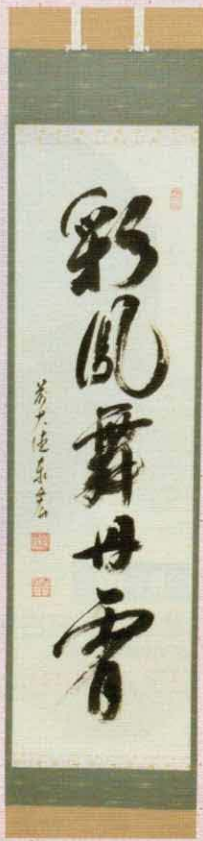 彩鳳舞丹霄
前大徳